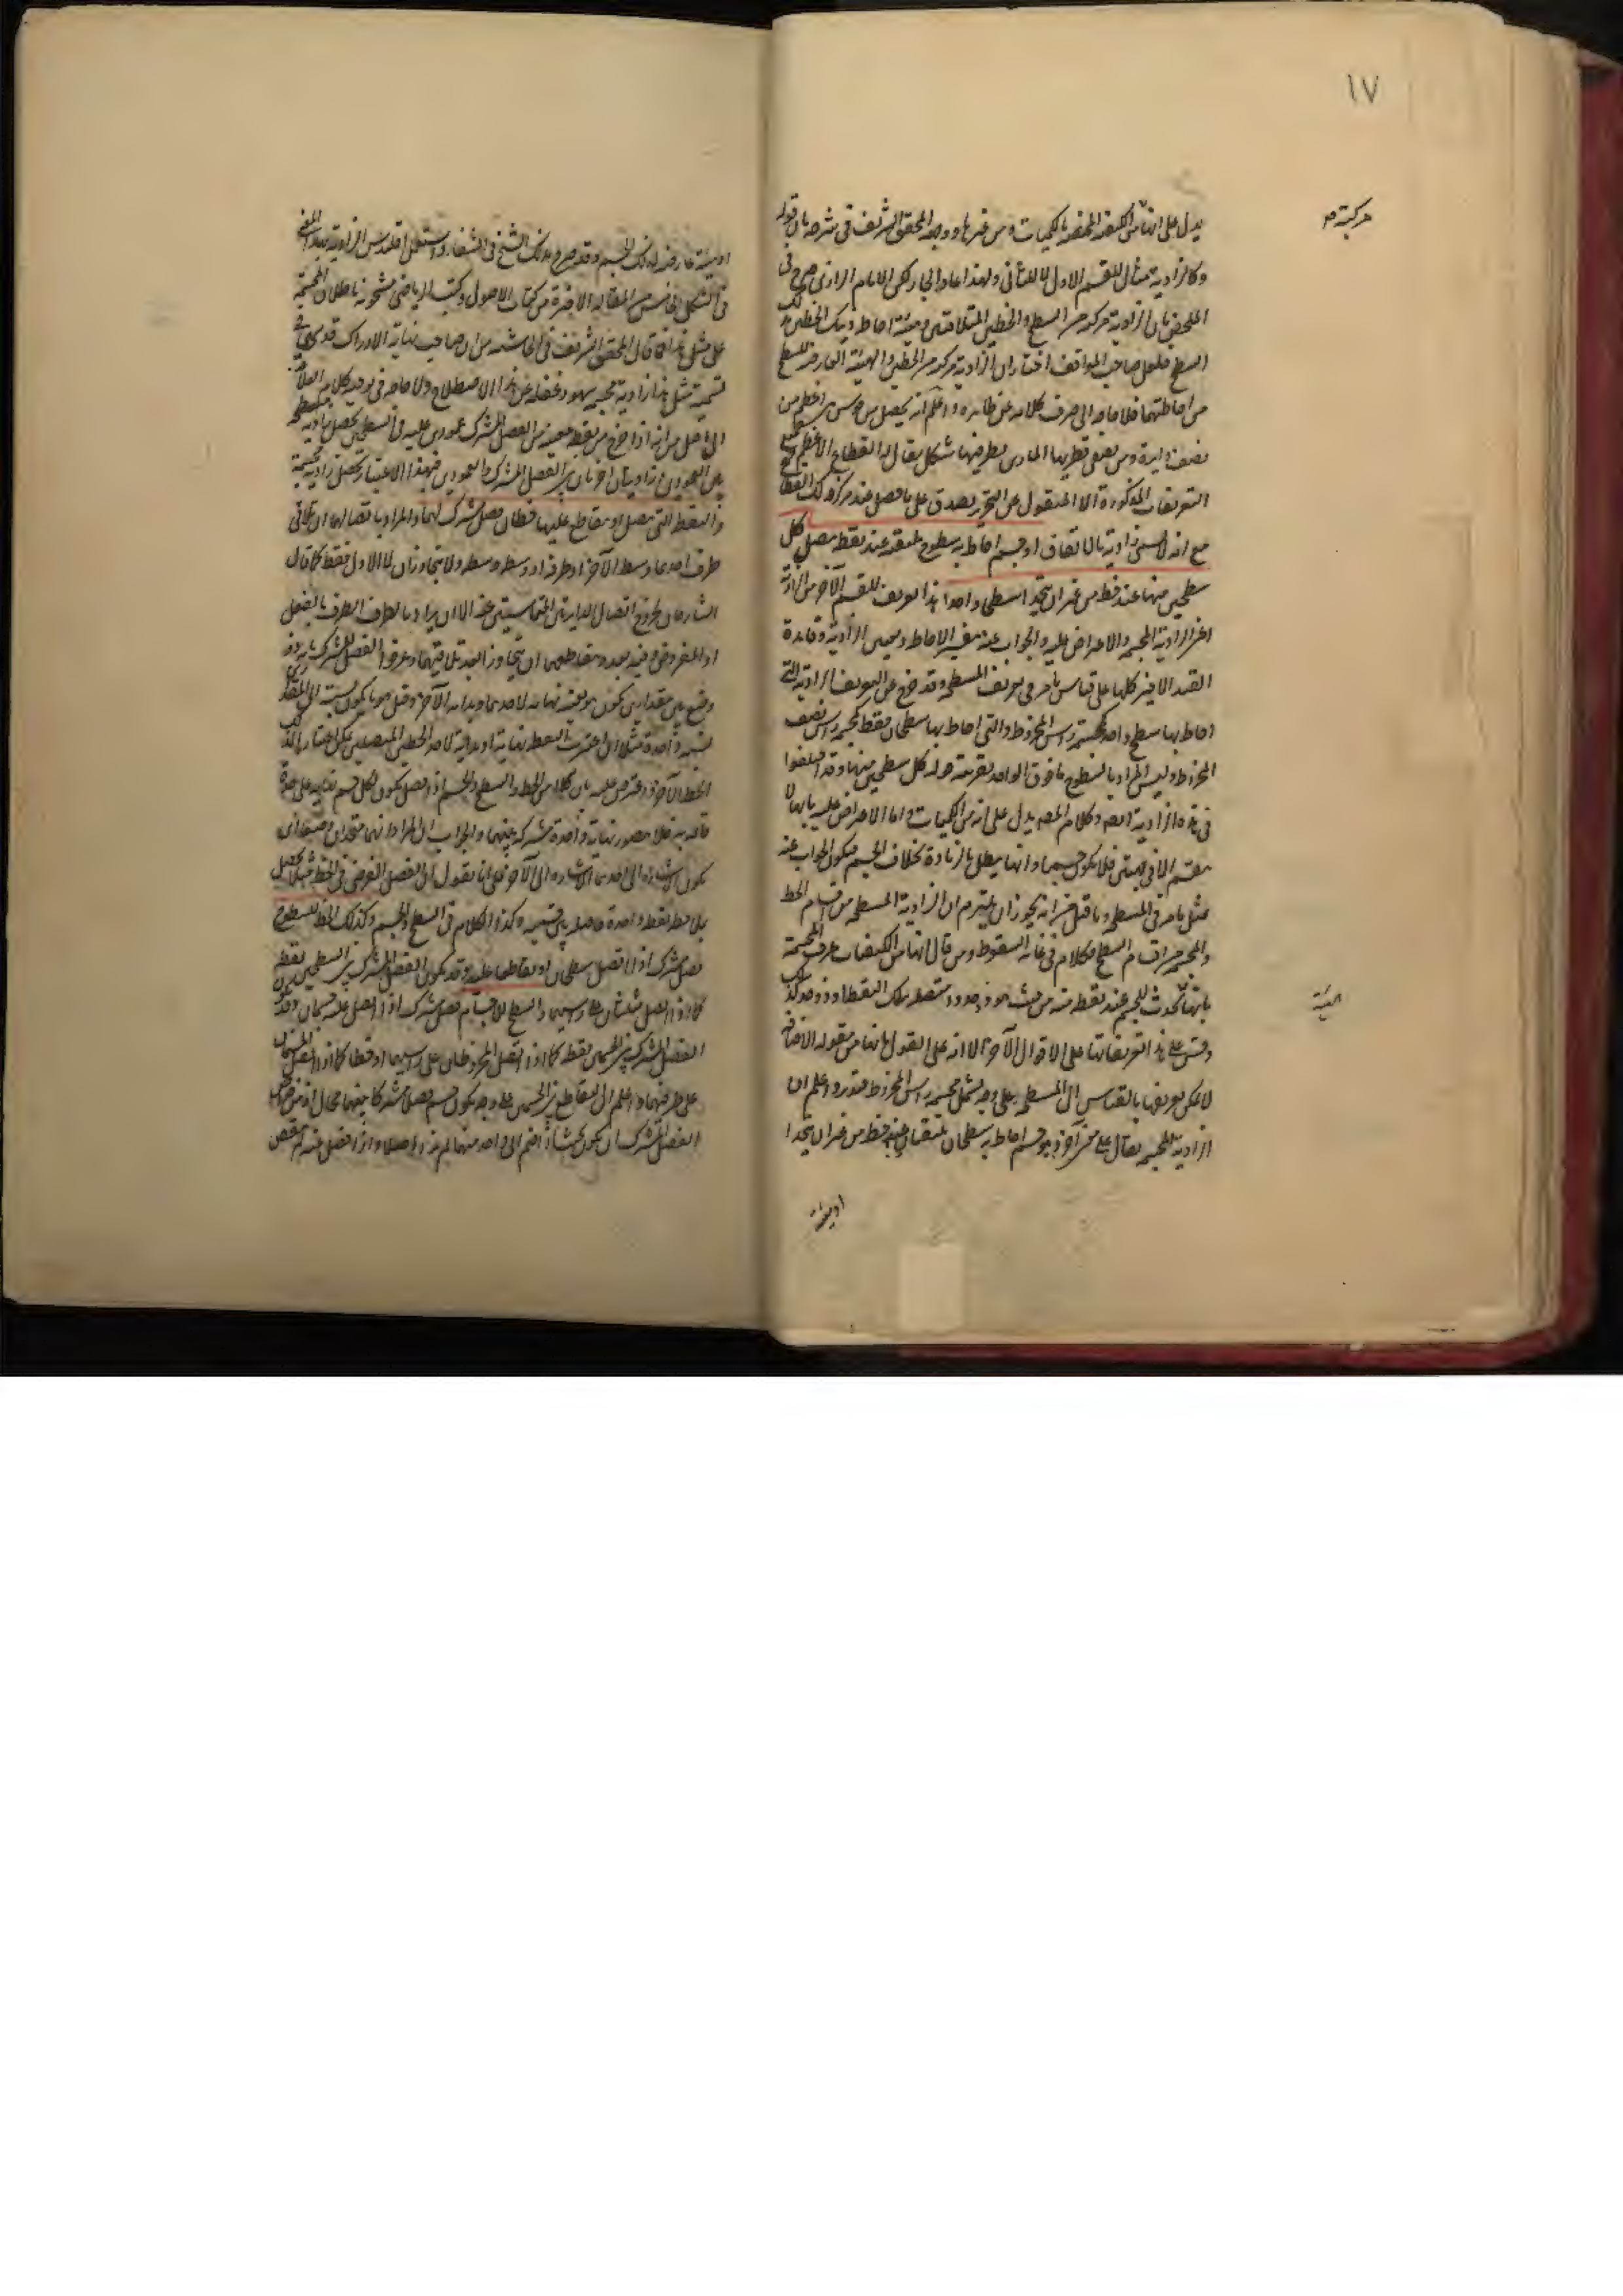 ١٧
يدل على انها من الكيفيات المختصة بالكميات ومن غيرها ووجه المحقق الشريف في شرحه بان قوله
مركبة من
وكالزاوية مثال للقسم الاول لا للثاني ولهذا اعاد الجار لكن الامام الرازي صرح في
الملخص بان الزاوية مركبة من السطح والخطين المتلاقيين وهيئة احاطة ذينك الخطين بذلك
السطح فلعل صاحب المواقف اختار ان الزاوية مركبة من الخطين والهيئة العارضة للسطح
من احاطتهما فلا حاجة الى صرف كلامه عن ظاهره واعلم انه يحصل من قوس هي اعظم من
نصف دايرة ومن نصفي قطريها المارين بطرفيها شكل يقال له القطاع الاعظم وجميع
التعريفات المذكورة الا المنقول عن التحرير يصدق على ما حصل عند مركز ذلك القطاع
مع انه لا يسمى زاوية بالاتفاق او جسم احاط به سطوح ملتقية عند نقطة متصل كل
سطحين منها عند خط من غير ان يتحدا سطحا واحدا هذا تعريف للقسم الآخر من الزاوية
اعني الزاوية المجسمة والاعراض عليه والجواب عنه وتفسير الاحاطة وتعيين الزاوية وفايدة
القيد الاخير كلها على قياس ما مر في تعريف المسطحة وقد خرج عن التعريف الزاوية التي
احاط بها سطح واحد كمجسمة راس المخروط والتي احاط بها سطحان فقط كمجسمة راس نصف
المخروط وليس المراد بالسطوح ما فوق الواحد بقرينة قوله كل سطحين منها وقد اختلفوا
في هذه الزاوية ايضا وكلام المصنف يدل على انه من الكميات واما الاعراض عليه بانها لا
ينقسم الا في جهتين فلا يكون جسما وانها يبطل بالزيادة بخلاف الجسم فيكون الجواب عنه
مثل ما مر في المسطحة وما قيل من انه يجوز ان يلتزم ان الزاوية المسطحة من اقسام الخط
والمجسمة من اقسام السطح فكلام في غاية السقوط ومن قال انها من الكيفيات عرف المجسمة
بانها هيئة تحدث للجسم عند نقطة منه من حيث هو ذو حدود متصلة بتلك النقطة او ذو حد كذلك
هيئة
وقس على هذا تعريفاتها على الاقوال الآخر الا انه على القول بانها من مقولة الاضافة
لا يمكن تعريفها بالقياس الى المسطحة على وجه يشمل مجسمة راس المخروط فتدبر واعلم ان
الزاوية المجسمة يقال على معنى آخر وهو جسم احاط به سطحان يلتقيان عند خط من غير ان يتحدا
او هيئة
او هيئة عارضة لذلك الجسم وقد صرح بذلك الشيخ في الشفاء واستعمل اقليدس الزاوية بهذا المعنى
في الشكل الخامس من المقالة الاخيرة من كتاب الاصول وكتب الرياضي مشحونة باطلاق المجسمة
على مثل هذا فما قال المحقق الشريف في الحاشية من ان صاحب نهاية الادراك قد سهى في
تسمية مثل هذا زاوية مجسمة سهو وغفلة عن هذا الاصطلاح ولا حاجة في توجيه كلام العلامة
الى ما قيل من انه اذا خرج من نقطة معينة من الفصل المشترك عمودين عليه في السطحين يحصل زاوية مسطحة
بين العمودين وزاويتان اخريان بين الفصل المشترك والعمودين فبهذا الاعتبار تحصل زاوية مجسمة
والنقطة التي يتصل او يتقاطع عليها خطان فصل مشترك لهما والمراد باتصالهما ان يلاقي
طرف احدهما وسط الآخر او طرفه او وسطه وسطه ولا يتجاوزان لا الاول فقط كما قال
الشارحان لخروج اتصال الدايرتين المتماستين عنه الا ان يراد بالطرف الطرف بالفعل
او المفروض وفيه بعد وبتقاطعهما ان يتجاوزا بعد تلاقيهما وعرفوا الفصل المشترك بانه ذو
وضع بين مقدارين يكون هو بعينه نهاية لاحدهما وبداية الآخر وقيل هو ما يكون نسبته الى المقدارين
نسبة واحدة مثلا ان اعتبرت النقطة نهاية او بداية لاحد الخطين المتصلين يمكن اعتبارها كذلك
للخط الآخر واعترض عليه بان كلا من الخط والسطح والجسم اذا فصل يكون لكل قسم نهاية على حدة
قائمة به فلا يتصور نهاية واحدة مشتركة بينهما والجواب ان المراد انهما متحدان وضعا اي
يكون الاشارة الى احدهما الاشارة الى الآخر على انا نقول ان الفصل الفرضي في الخط مثلا يحصل
بملاحظة نقطة واحدة فاصلة بين قسميه وكذا الكلام في السطح والجسم وكذلك الخط للسطوح
فصل مشترك اذا اتصل سطحان او تقاطعا عليه وقد يكون الفصل المشترك بين السطحين نقطة
كما اذا اتصل مثلثان على راسيهما والسطح للاجسام فصل مشترك اذا اتصل عليه جسمان وقد يكون
الفصل المشترك بين الجسمين نقطة كما اذا اتصل المخروطان على راسيهما او خطا كما اذا اتصل الجسمان
على طرفيهما واعلم ان التقاطع بين الجسمين على وجه يكون جسم فصلا مشتركا بينهما محال اذ من خواص
الفصل المشترك ان يكون بحيث اذا انضم الى واحد منهما لم يزد اصلا واذا انفصل عنه لم ينقص